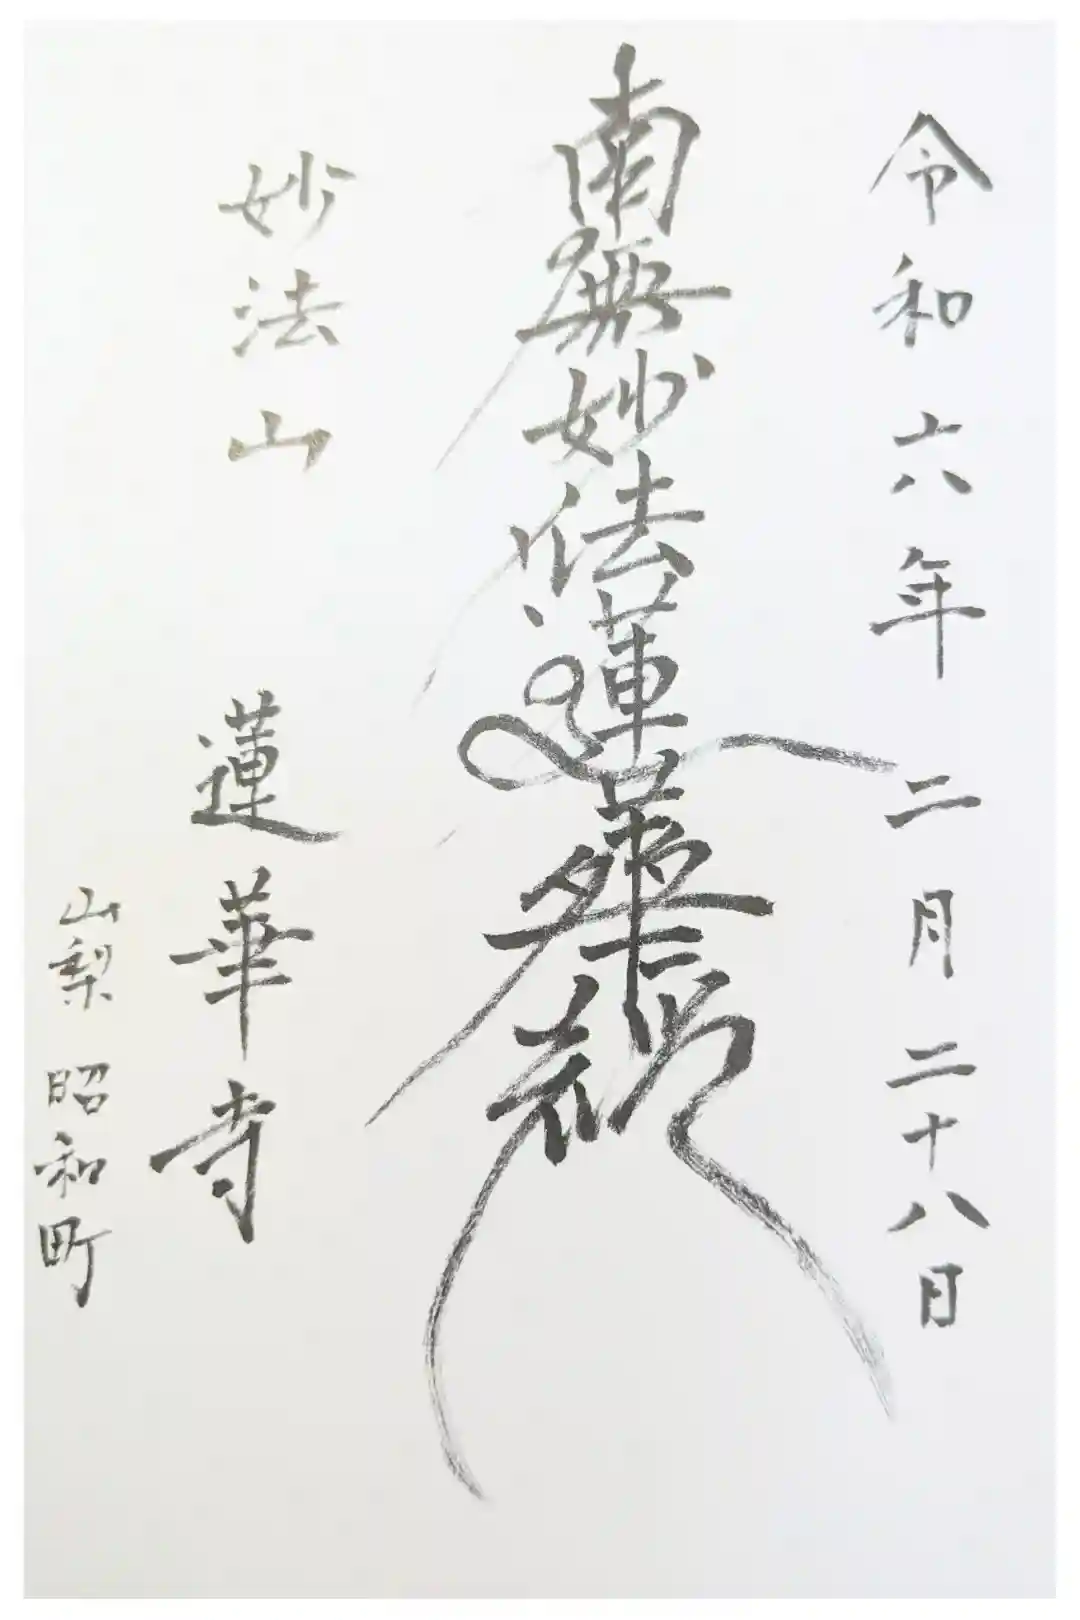 令和六年二月二十八日
南無妙法蓮華経
妙法山 蓮華寺
山梨 昭和町